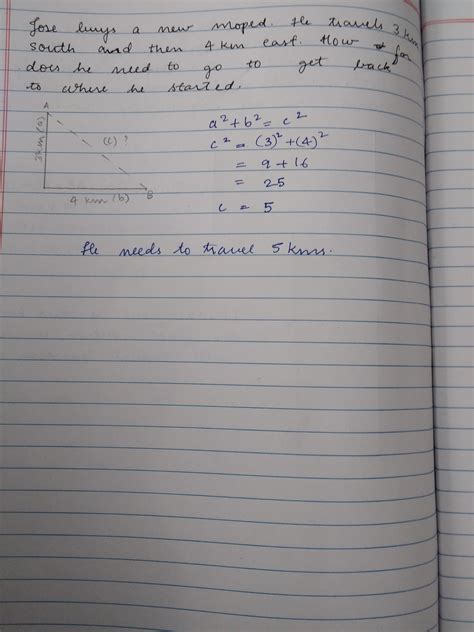 Jose buys a new moped. He travels 3 km
south and then 4 km east. How far
does he need to go to get back
to where he started.
A
3 km (a)
(c) ?
4 km (b)
B
a² + b² = c²
c² = (3)² + (4)²
= 9 + 16
= 25
c = 5
He needs to travel 5 kms.